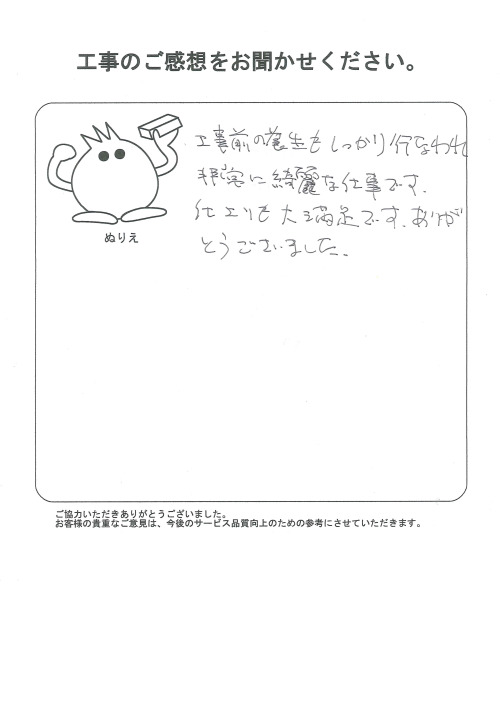 工事のご感想をお聞かせください。
工事前の養生もしっかり行なわれ
非常に綺麗な仕事です.
仕上りも大満足です.ありが
とうございました.
ぬりえ
ご協力いただきありがとうございました。
お客様の貴重なご意見は、今後のサービス品質向上のための参考にさせていただきます。